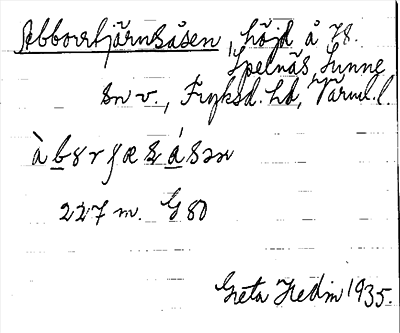 Abbortjärnsåsen, höjd å 78.
Spelnäs, Sunne
sn v., Fryksd. hd, Värml. l.
àbɤrʃæsásəɴ
227 m. G 80
Greta Hedin 1935.